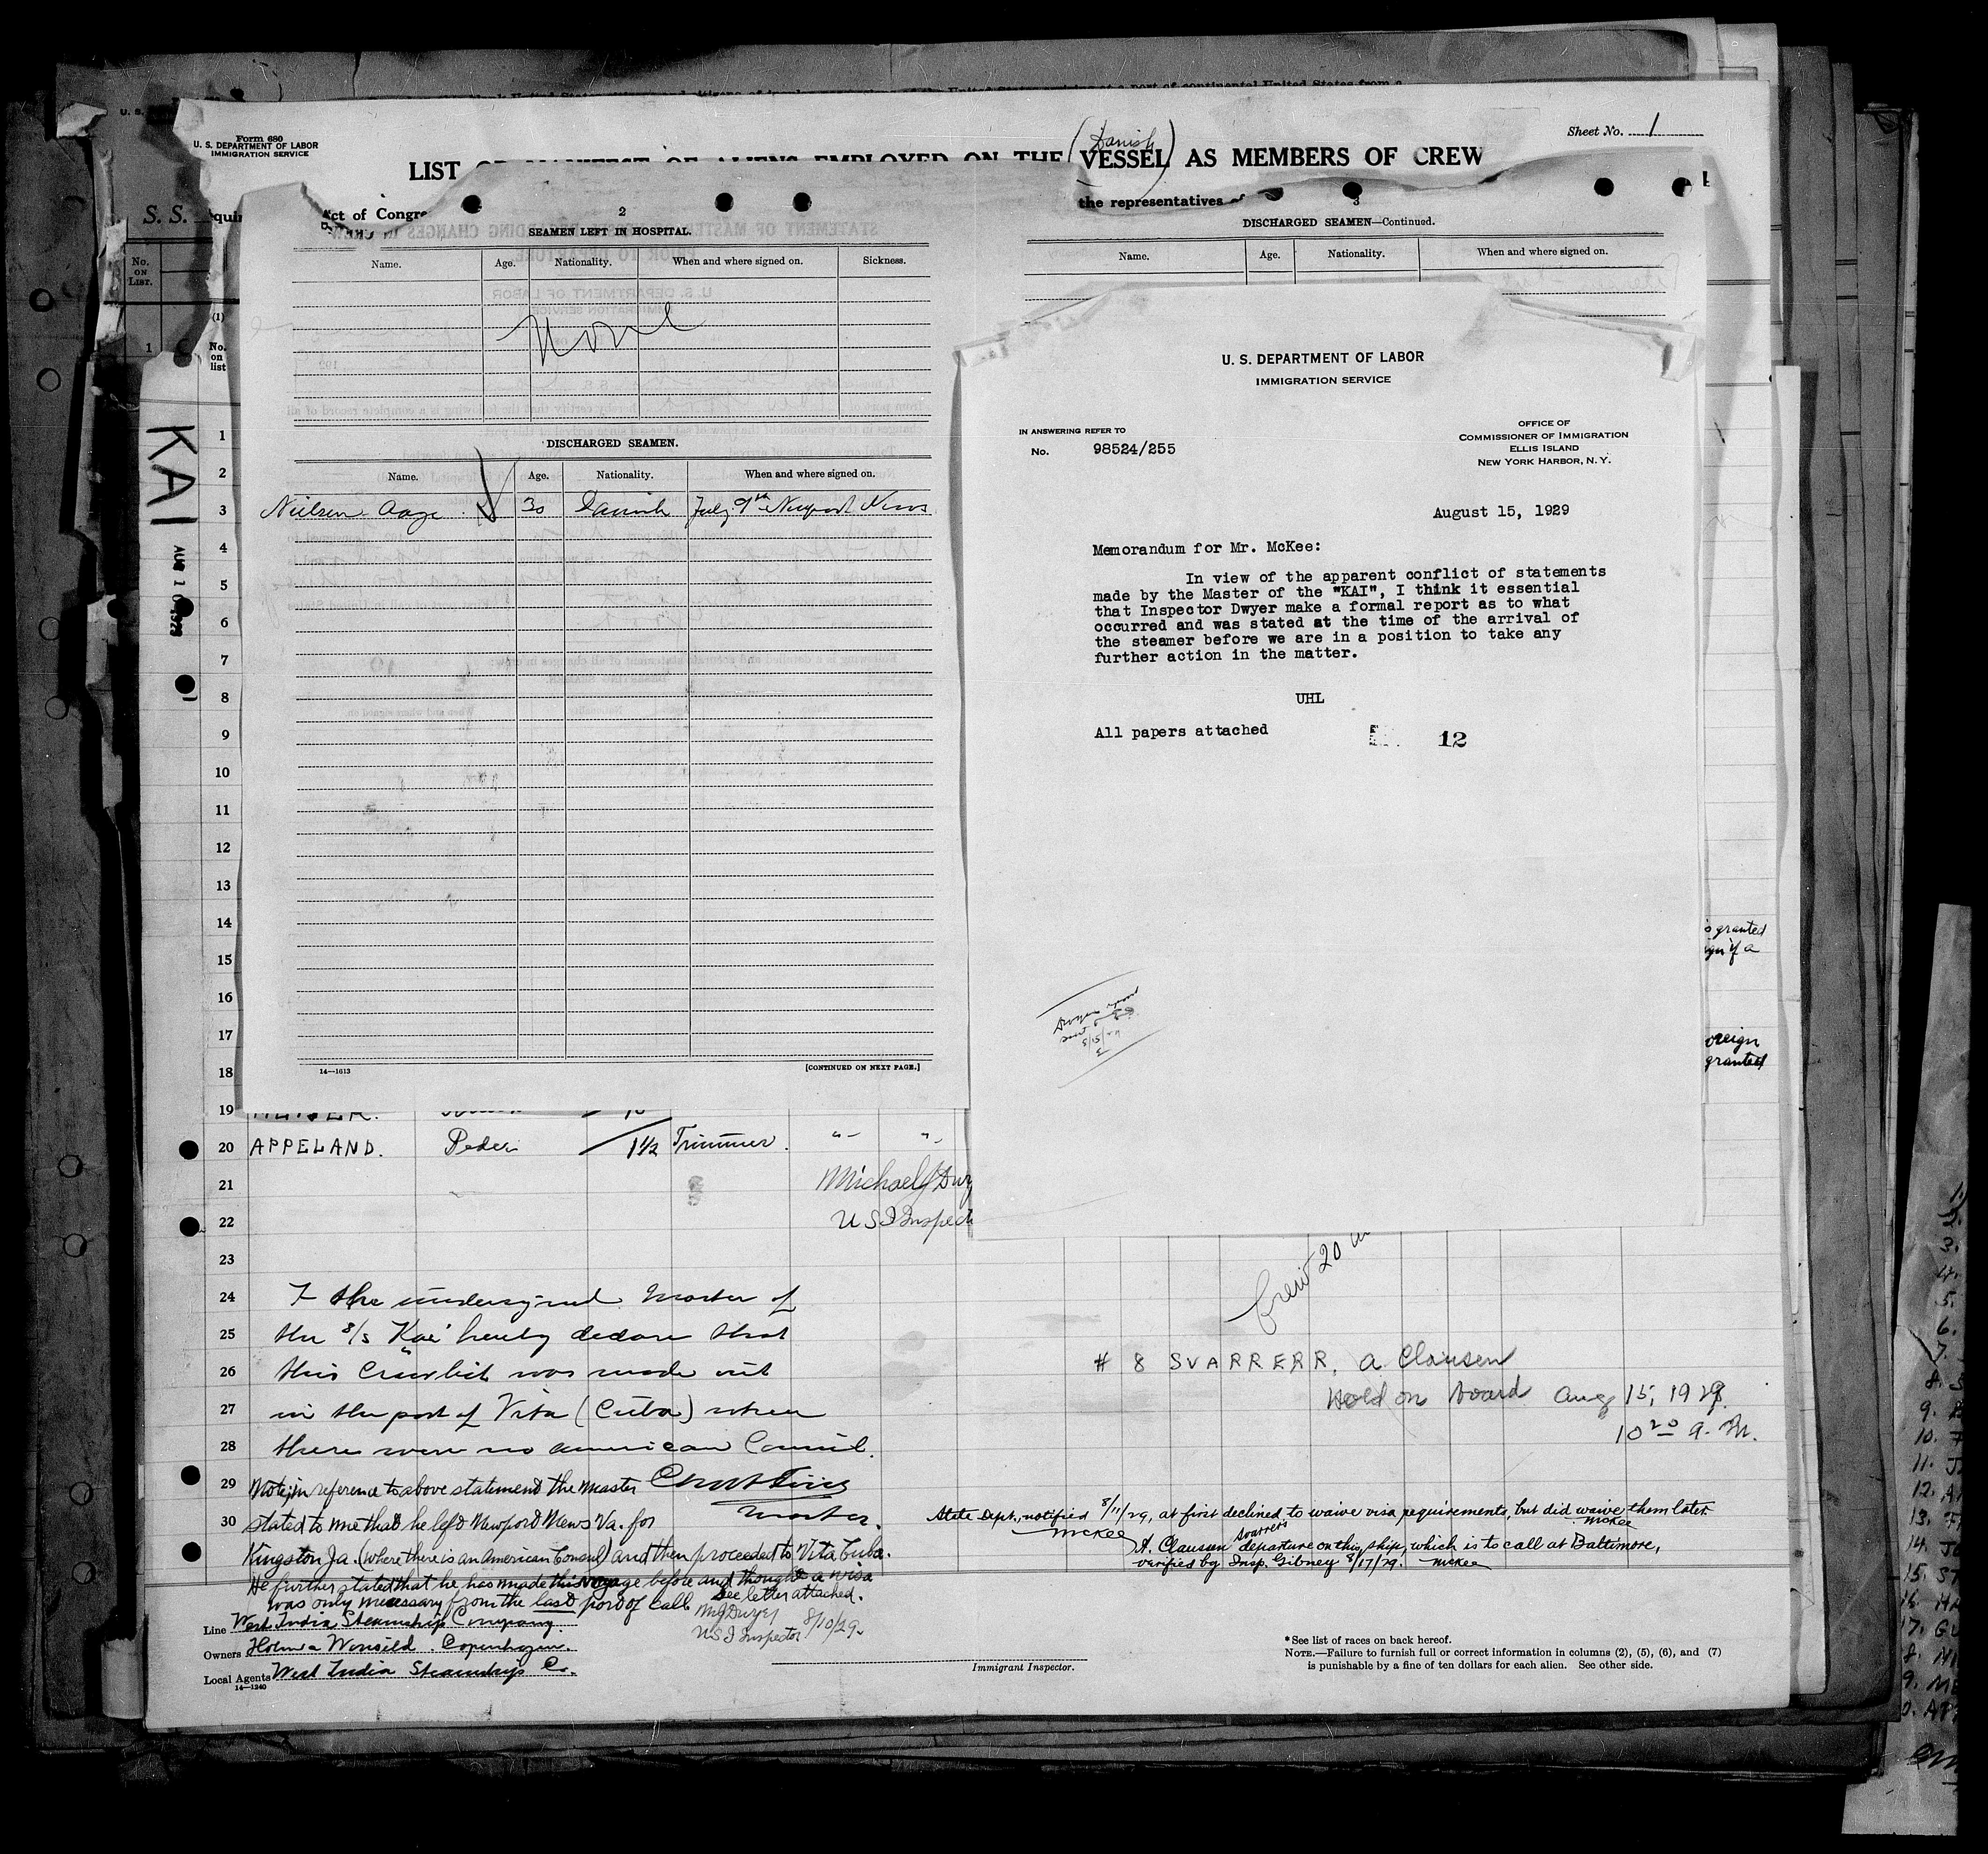 Form 680
U. S. DEPARTMENT OF LABOR
IMMIGRATION SERVICE
Sheet No. 1
(Danish)
LIST OR MANIFEST OF ALIENS EMPLOYED ON THE VESSEL AS MEMBERS OF CREW
Act of Congre
the representatives of
S. S.
No.
on
List.
(1)
No.
on
list
KAI
AUG 10 1929
2
SEAMEN LEFT IN HOSPITAL.
Name. Age. Nationality. When and where signed on. Sickness.
None
DISCHARGED SEAMEN.
Name. Age. Nationality. When and where signed on.
Nielsen Aage 30 Danish July 9th Newport News
14—1613
[CONTINUED ON NEXT PAGE.]
3
DISCHARGED SEAMEN—Continued.
Name. Age. Nationality. When and where signed on.
U. S. DEPARTMENT OF LABOR
IMMIGRATION SERVICE
IN ANSWERING REFER TO
No. 98524/255
OFFICE OF
COMMISSIONER OF IMMIGRATION
ELLIS ISLAND
NEW YORK HARBOR, N. Y.
August 15, 1929
Memorandum for Mr. McKee:
In view of the apparent conflict of statements
made by the Master of the "KAI", I think it essential
that Inspector Dwyer make a formal report as to what
occurred and was stated at the time of the arrival of
the steamer before we are in a position to take any
further action in the matter.
UHL
All papers attached
12
1
2
3
4
5
6
7
8
9
10
11
12
13
14
15
16
17
18
19
20 APPELAND. Peder 1½ Trimmer. "- "-
21 Michael J Dwy
22 U S I Inspect
23
24 I the undersigned Master of
25 the s/s "Kai" hereby declare that
26 this Crewlist was made out
27 in the port of Vita (Cuba) where
28 there were no american Consul.
29 Note; in reference to above statement the master
Master.
30 stated to me that he left Newport News Va. for
Kingston Ja. (where there is an American Consul) and then proceeded to Vita Cuba.
He further stated that he has made this voyage before and thought a visa
was only necessary from the last port of call. See letter attached.
MJ Dwyer
U S I Inspector 8/10/29
Crew 20
# 8 SVARRERR, A Clausen
Hold on board Aug 15, 1929.
10 20 a. m.
State Dept., notified 8/11/29, at first declined to waive visa requirements, but did waive them later.
McKee
McKee
A. Clausen Svarrer's departure on this ship, which is to call at Baltimore,
verified by Insp. Gibney 8/17/29. McKee
Line West India Steamship Company.
Owners Holm & Wonsild. Copenhagen.
Local Agents West India Steamship Co.
14—1240
Immigrant Inspector.
*See list of races on back hereof.
NOTE.—Failure to furnish full or correct information in columns (2), (5), (6), and (7)
is punishable by a fine of ten dollars for each alien. See other side.
granted
if a
foreign
granted